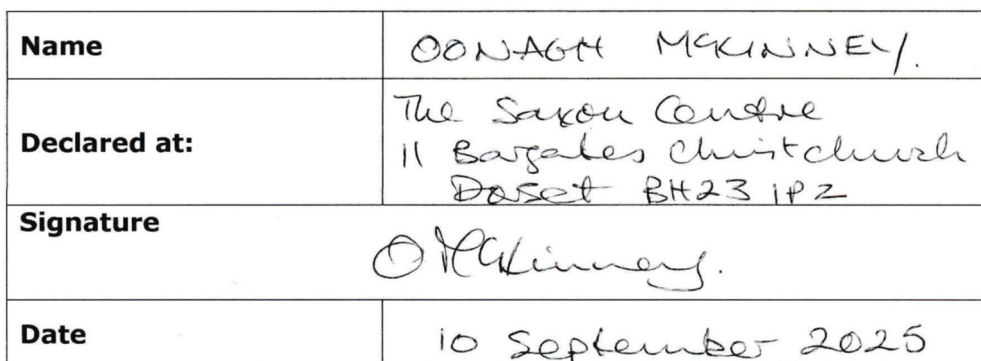 Name OONAGH McKINNEY.
Declared at: The Saxon Centre
11 Bargates Christchurch
Dorset BH23 1PZ
Signature
O McKinney.
Date 10 September 2025